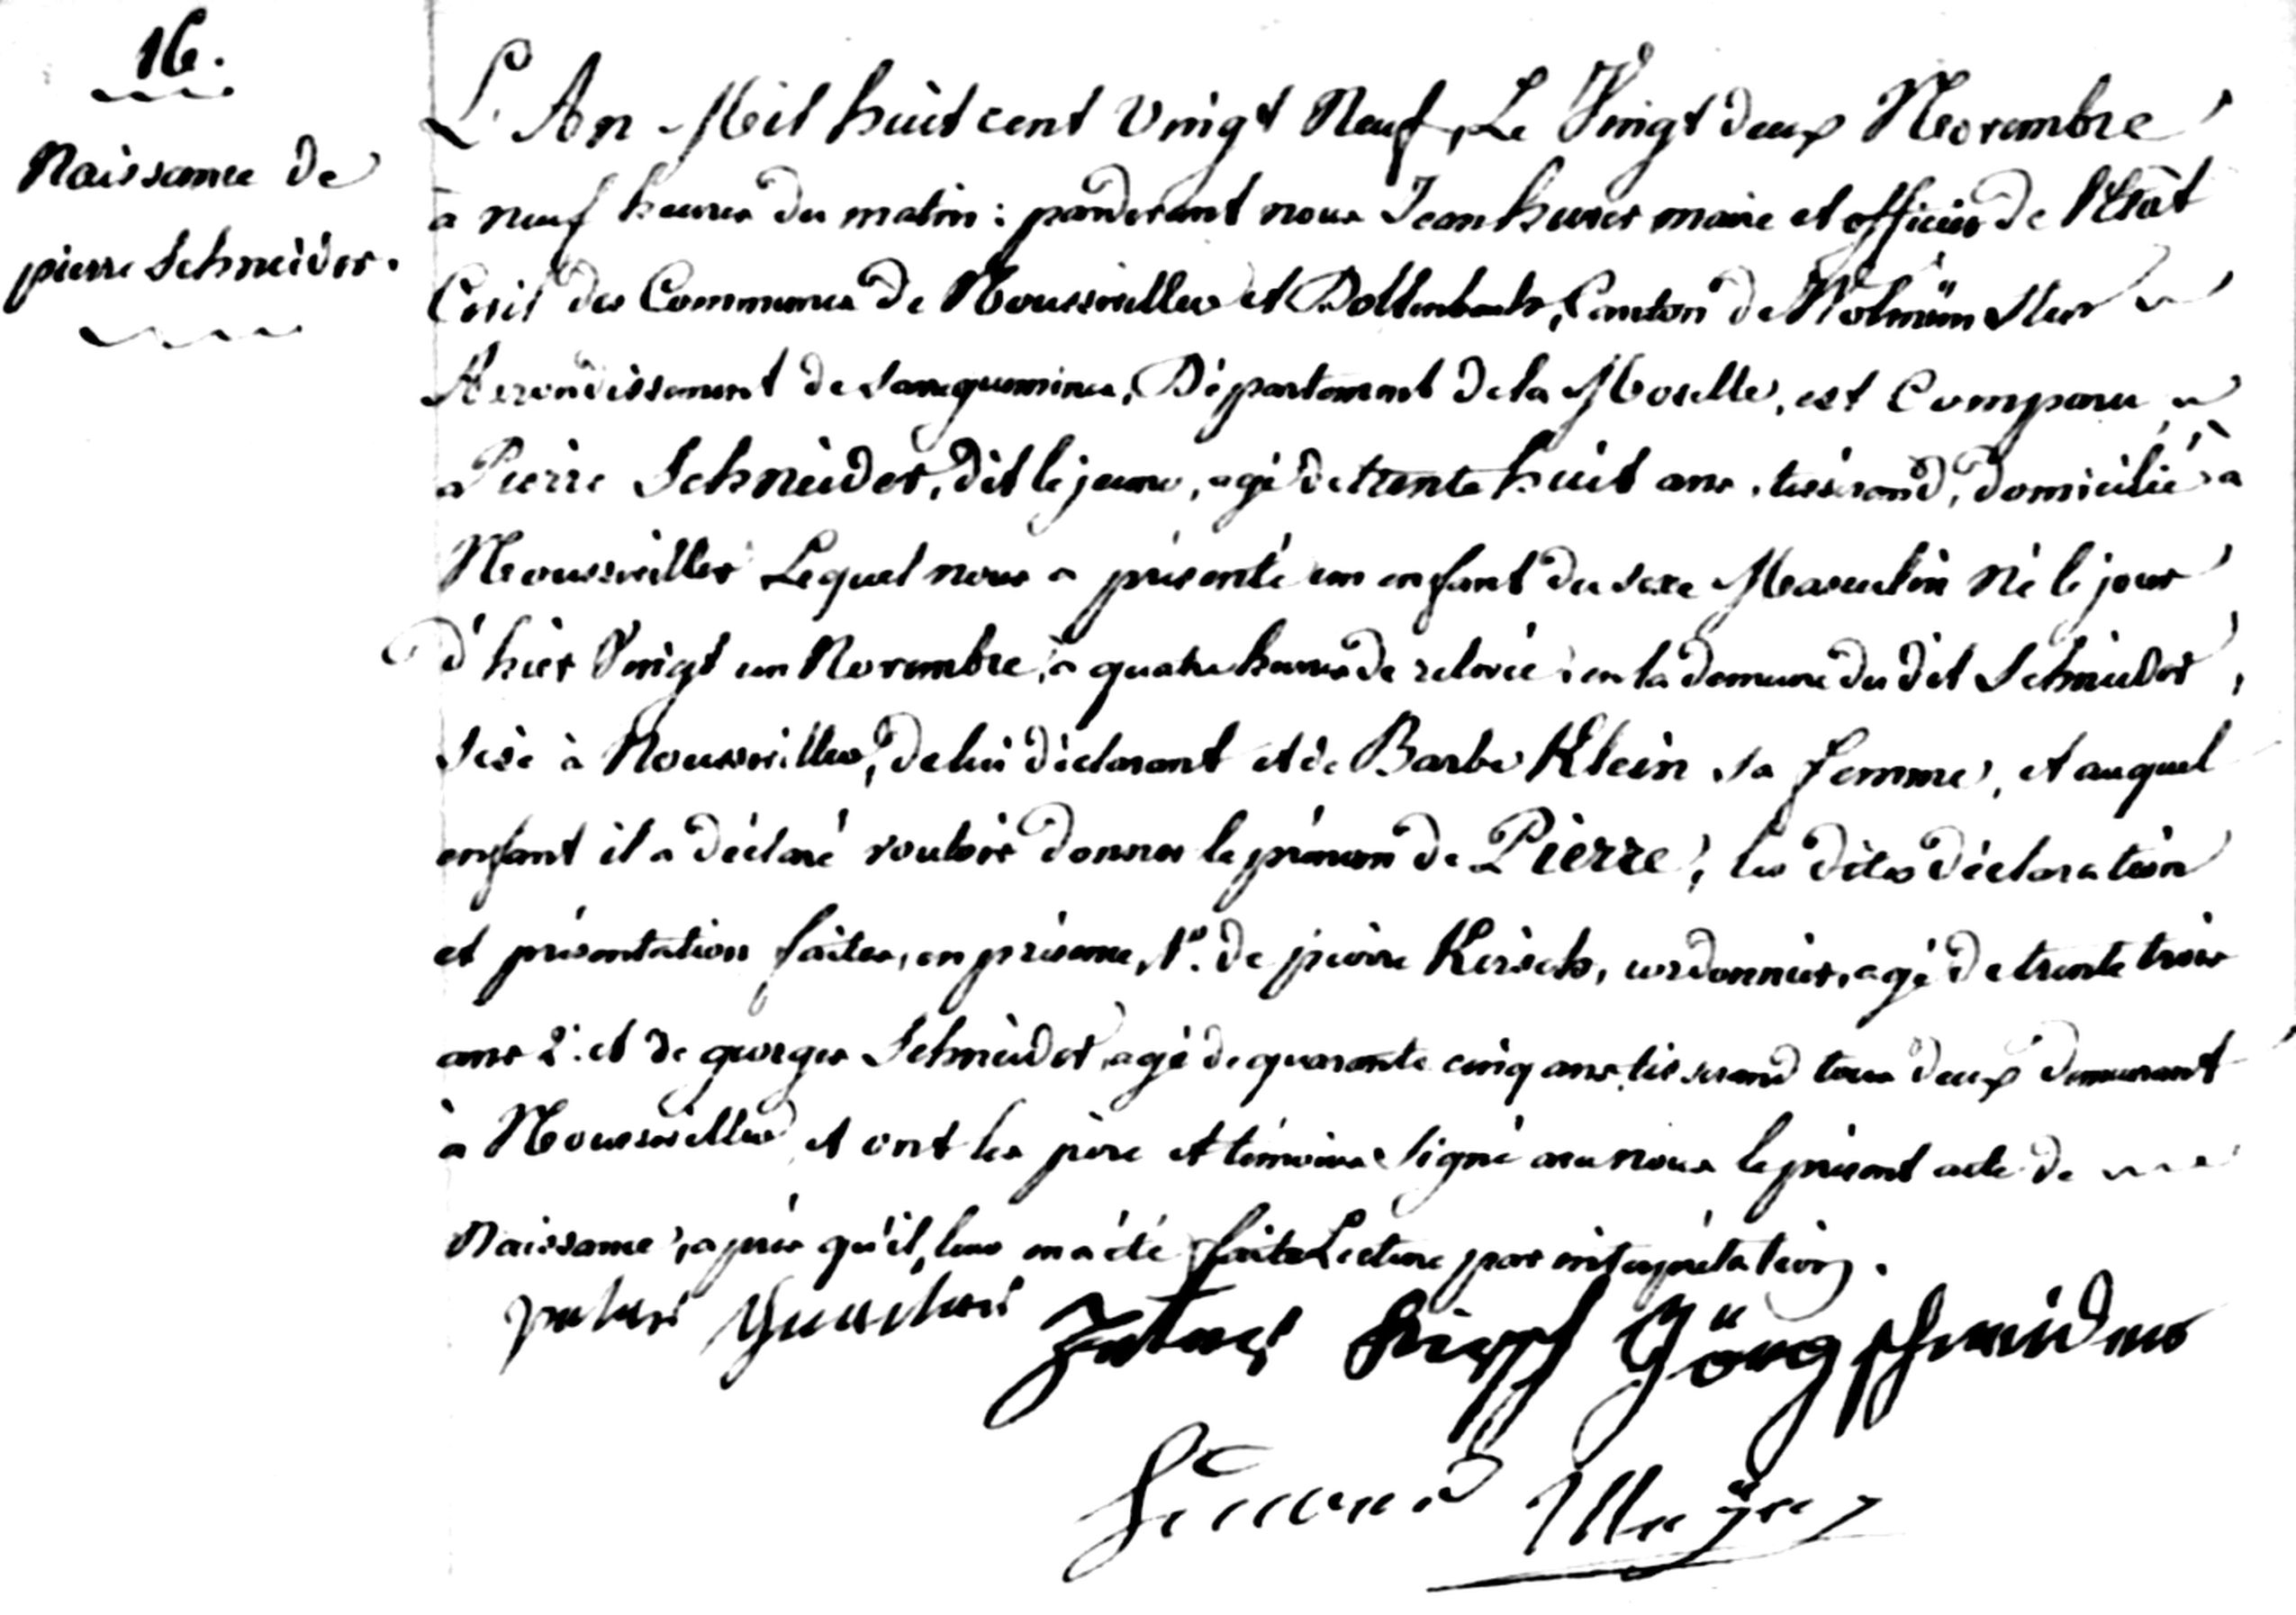 16.
Naissance de
pierre Schneider.
L'An Mil huit cent Vingt Neuf, Le Vingt deux Novembre
à neuf heures du matin : pardevant nous Jean hurer maire et officier de l'Etat
Civil des Communes de Nousseviller et Dollenbach, Canton de Wolmünster
Arrondissement de Sarreguemines, Département de la Moselle, est Comparu
Pierre Schneider, dit le jeune, agé de trente huit ans, tisserand, domicilié à
Nousseviller Lequel nous a présenté un enfant du sexe Masculin Né le jour
d'hier Vingt un Novembre, à quatre heures de relevée, en la demeure du dit Schneider,
sise à Nousseviller, de lui déclarant et de Barbe Klein sa femme, et auquel
enfant il a déclaré vouloir donner le prénom de Pierre, les dites déclaration
et présentation faites, en présence, 1° de pierre Kirsch, cordonnier, agé de trente trois
ans 2°. et de georges Schneider, agé de quarante cinq ans, tisserand tous deux demeurant
à Nousseviller et ont les père et témoins signé avec nous le présent acte de
Naissance, après qu'il leur en a été faite Lecture par interprétation.
Jörg Schneider